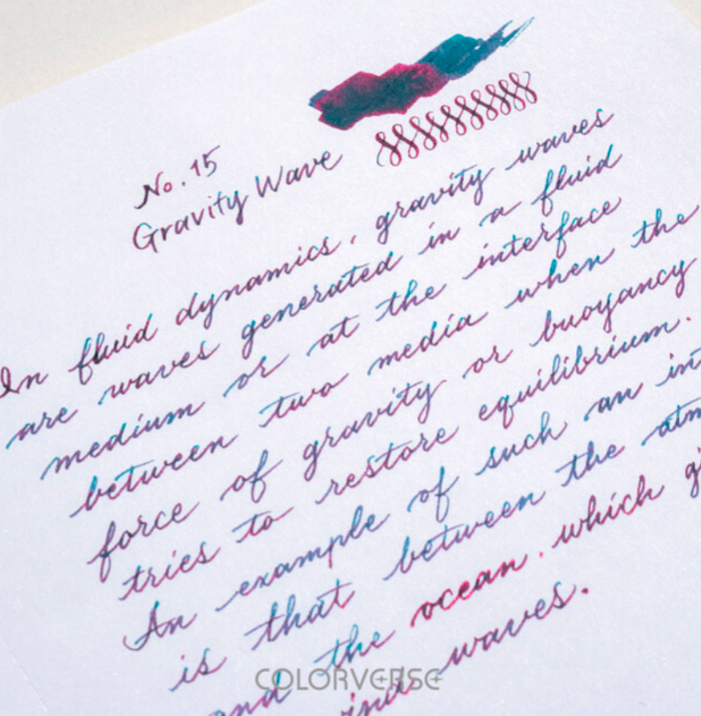 No. 15
Gravity Wave
In fluid dynamics, gravity waves
are waves generated in a fluid
medium or at the interface
between two media when the
force of gravity or buoyancy
tries to restore equilibrium.
An example of such an
is that between the
and the ocean, which
waves.
COLORVERSE